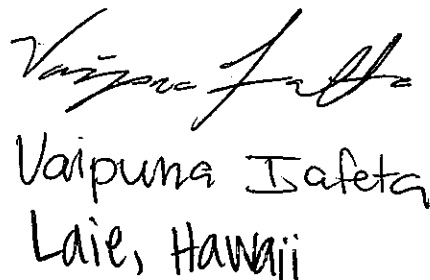 Vaipuna Iafeta
Vaipuna Iafeta
Laie, Hawaii